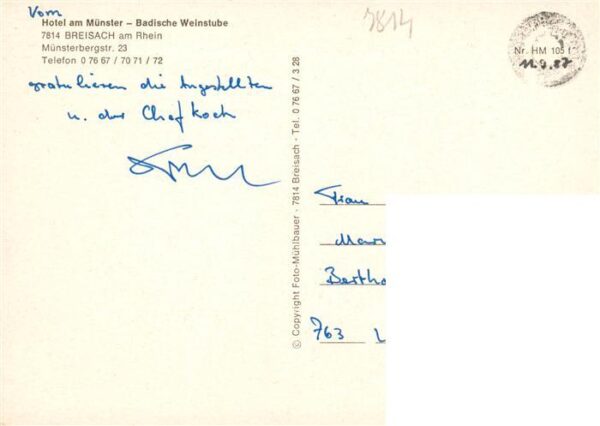 Vom
Hotel am Münster – Badische Weinstube
7814 BREISACH am Rhein
Münsterbergstr. 23
Telefon 0 76 67 / 70 71 / 72
gratulieren die Angestellten
u. der Chefkoch
7814
Nr. HM 105 f
11.9.87
© Copyright Foto-Mühlbauer - 7814 Breisach - Tel. 0 76 67 / 3 28
Frau
Mar
Bertho
763 L